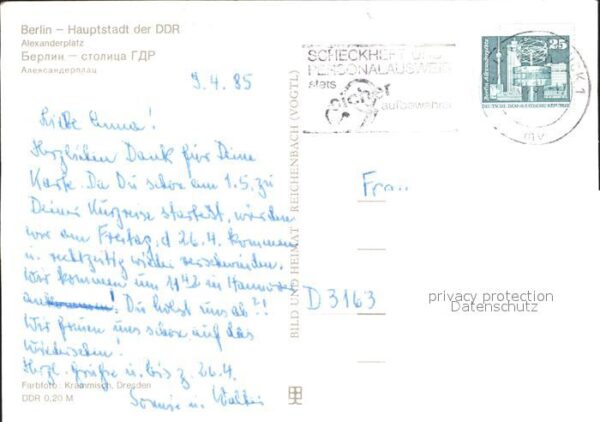 Berlin – Hauptstadt der DDR
Alexanderplatz
Берлин – столица ГДР
Александерплац
9.4.85
Liebe Anna!
Herzlichen Dank für Deine
Karte. Da Du schon am 1.5. zu
Deiner Kurzreise startest, würden
wir am Freitag, d 26.4. kommen
u. rechtzeitig wieder verschwinden.
Wir kommen um 1142 in Hannover
! Du holst uns ab?!
Wir freuen uns schon auf das
Wiedersehen!
Herzl. Grüße u. bis z. 26.4.
u. Walter
Farbfoto: Krammisch, Dresden
DDR 0,20 M
BILD UND HEIMAT REICHENBACH (VOGTL)
SCHECKHEFT UND
PERSONALAUSWEIS
stets
sicher
aufbewahren
25
DEUTSCHE DEMOKRATISCHE REPUBLIK
Frau
D 3163
privacy protection
Datenschutz